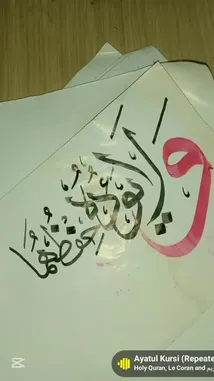 وَلَا يَئُودُهُ حِفْظُهُمَا
Ayatul Kursi (Repeate
Holy Quran, Le Coran and